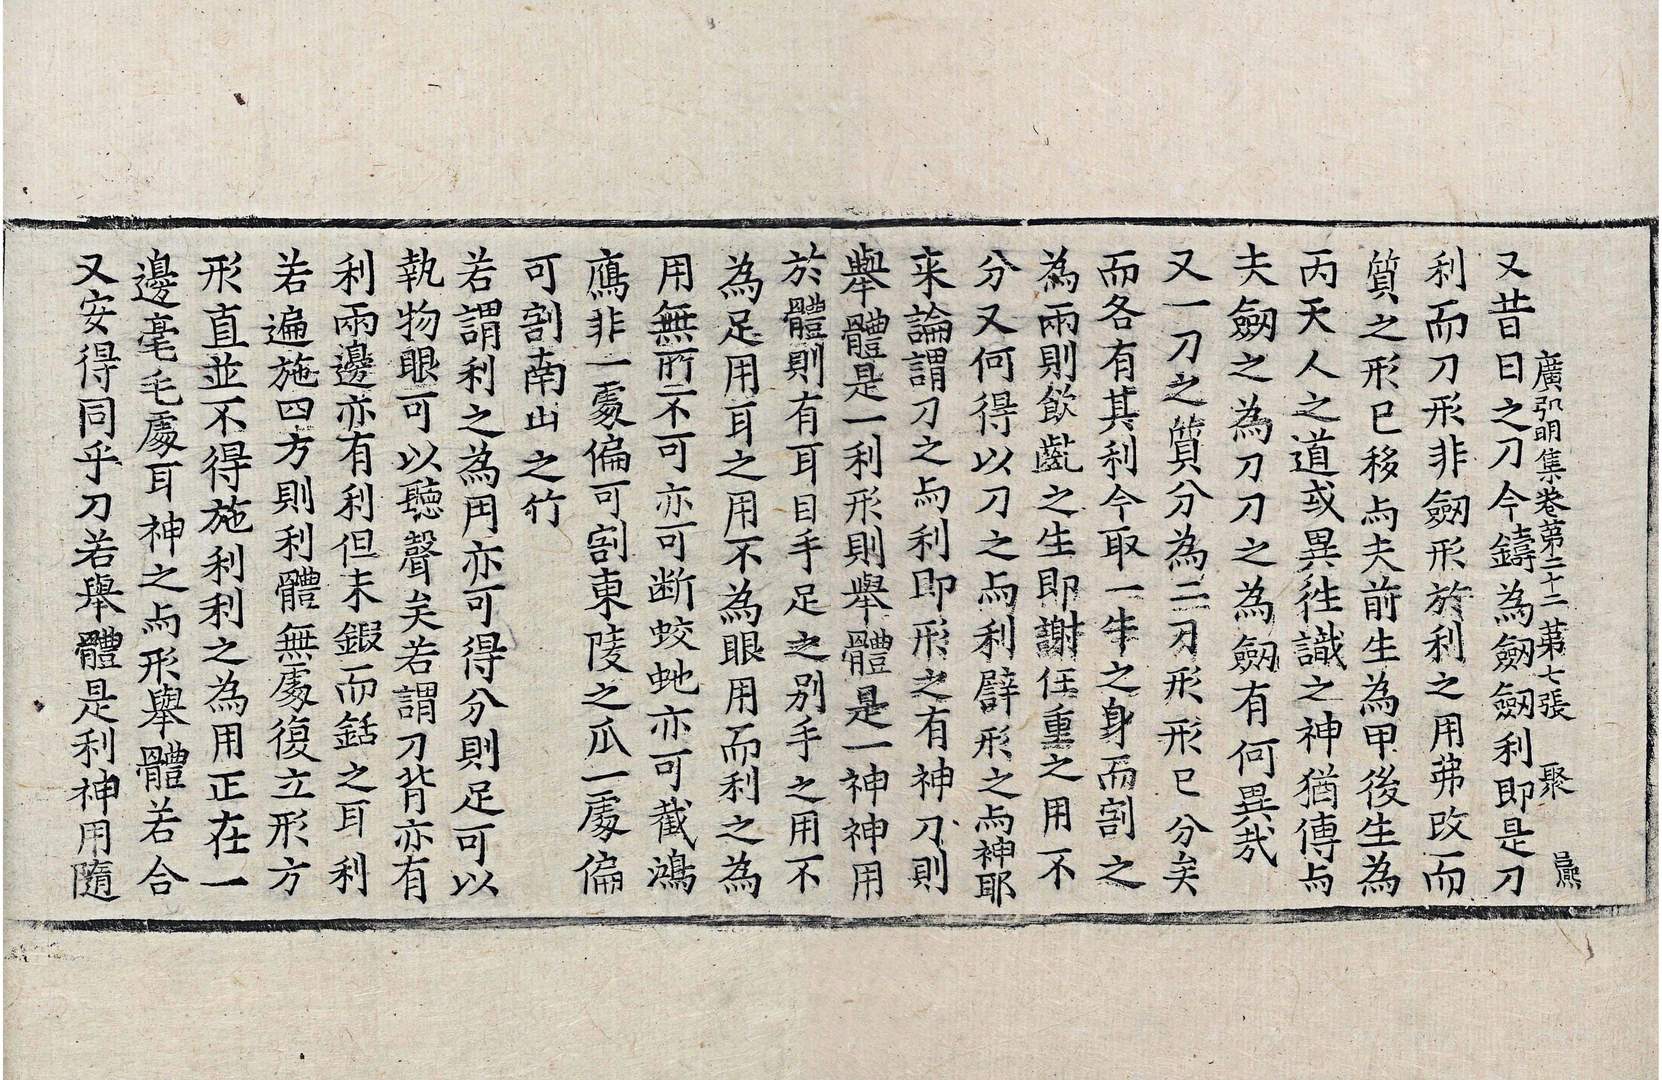 廣弘明集卷第二十二 第七張 聚
又昔日之刀今鑄為劒劒利即是刀
利而刀形非劒形於利之用弗改而
質之形已移与夫前生為甲後生為
丙天人之道或異徃識之神猶傳与
夫劒之為刀刀之為劒有何異㢤
又一刀之質分為二刀形形已分矣
而各有其利今取一牛之身而割之
為兩則飲齕之生即謝任重之用不
分又何得以刀之与利譬形之与神耶
来論謂刀之与利即形之有神刀則
舉體是一利形則舉體是一神神用
於體則有耳目手足之别手之用不
為足用耳之用不為眼用而利之為
用無所不可亦可断蛟虵亦可截鴻
鴈非一處偏可割東陵之瓜一處偏
可割南山之竹
若謂利之為用亦可得分則足可以
執物眼可以聽聲矣若謂刀背亦有
利兩邊亦有利但未鍜而銛之耳利
若遍施四方則利體無處復立形方
形直並不得施利利之為用正在一
邊毫毛處耳神之与形舉體若合
又安得同乎刀若舉體是利神用隨